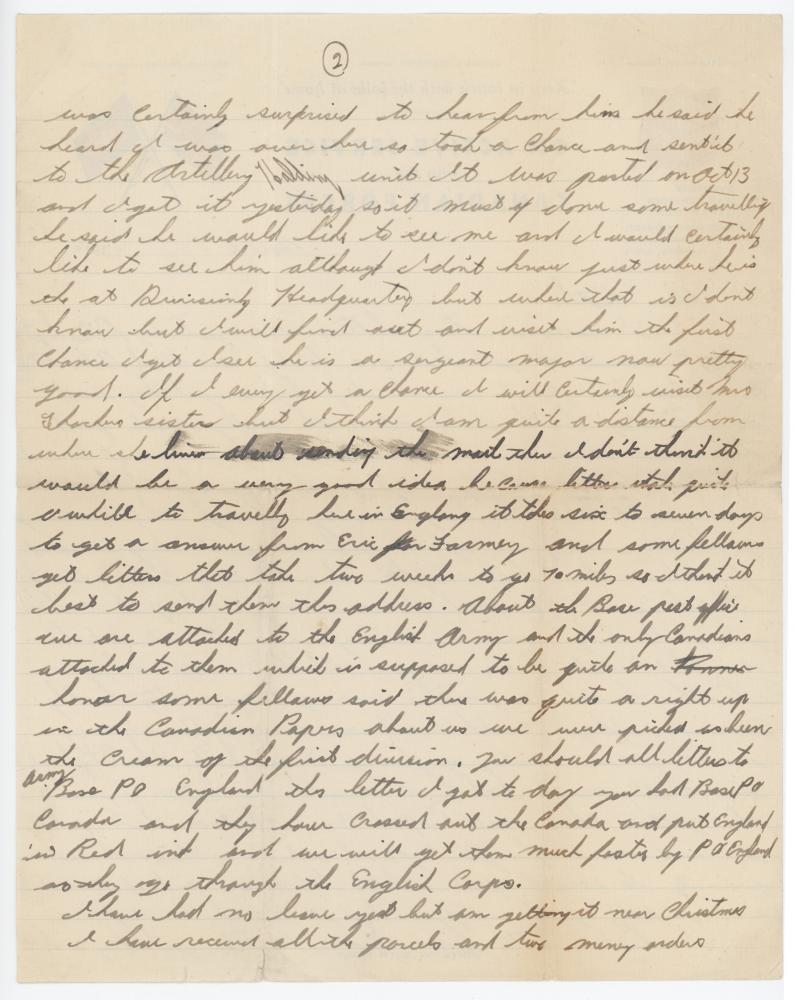 2
was certainly surprised to hear from him he said he
heard I was over here so took a chance and sent it
to the Artillery Holding unit It was posted on Oct 13
and I got it yesterday so it must of done some travelling
he said he would like to see me and I would certainly
like to see him although I don't know just where he is
the at Divisinly Headquarters but where that is I dont
know but I will find out and visit him the first
chance I get I see he is a sergeant major now pretty
good. If I every get a chance I will certainly visit Mrs
sister but I think I am quite a distance from
where she lives about sending the mail thru I don't think it
would be a very good idea because letters take quite
a while to travell here in England it takes six to seven days
to get a answer from Eric for Farmey and some fellows
get letters that take two weeks to go 70 miles so I think it
best to send them this address. About the Base post office
we are attached to the English Army and the only Canadians
attached to them which is supposed to be quite an
honor some fellows said there was quite a right up
in the Canadian Papers about us we were picked as been
the cream of the first division. You should all letters to
Army
Base PO England this letter I got to day you had Base PO
Canada and they have crossed out the Canada and put England
in Red ink and we will get them much faster by PO England
as they go through the English Corps.
I have had no leave yeat but am getting it near Christmas
I have received all the parcels and two money orders